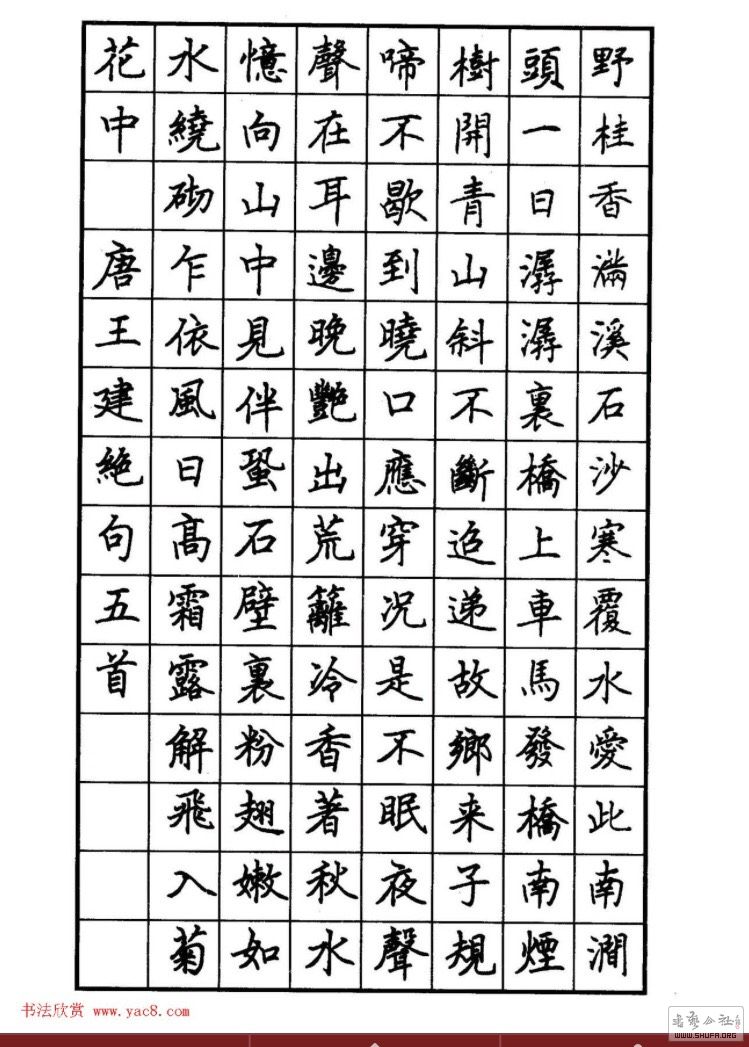 野桂香滿溪石沙寒覆水愛此南澗
頭一日潺潺裏橋上車馬發橋南煙
樹開青山斜不斷迢递故鄉来子規
啼不歇到曉口應穿況是不眠夜聲
聲在耳邊晚艷出荒籬冷香著秋水
憶向山中見伴蛩石壁裏粉翅嫩如
水繞砌乍依風日高霜露解飛入菊
花中 唐王建絶句五首
书法欣赏 www.yac8.com
WWW.SHUFA.ORG